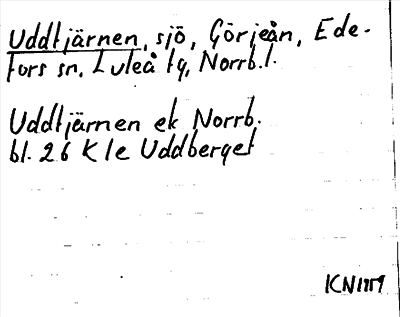 Uddtjärnen, sjö, Görjeån, Ede-
fors sn, Luleå tg, Norrb.l.
Uddtjärnen ek Norrb.
bl. 26 K le Uddberget